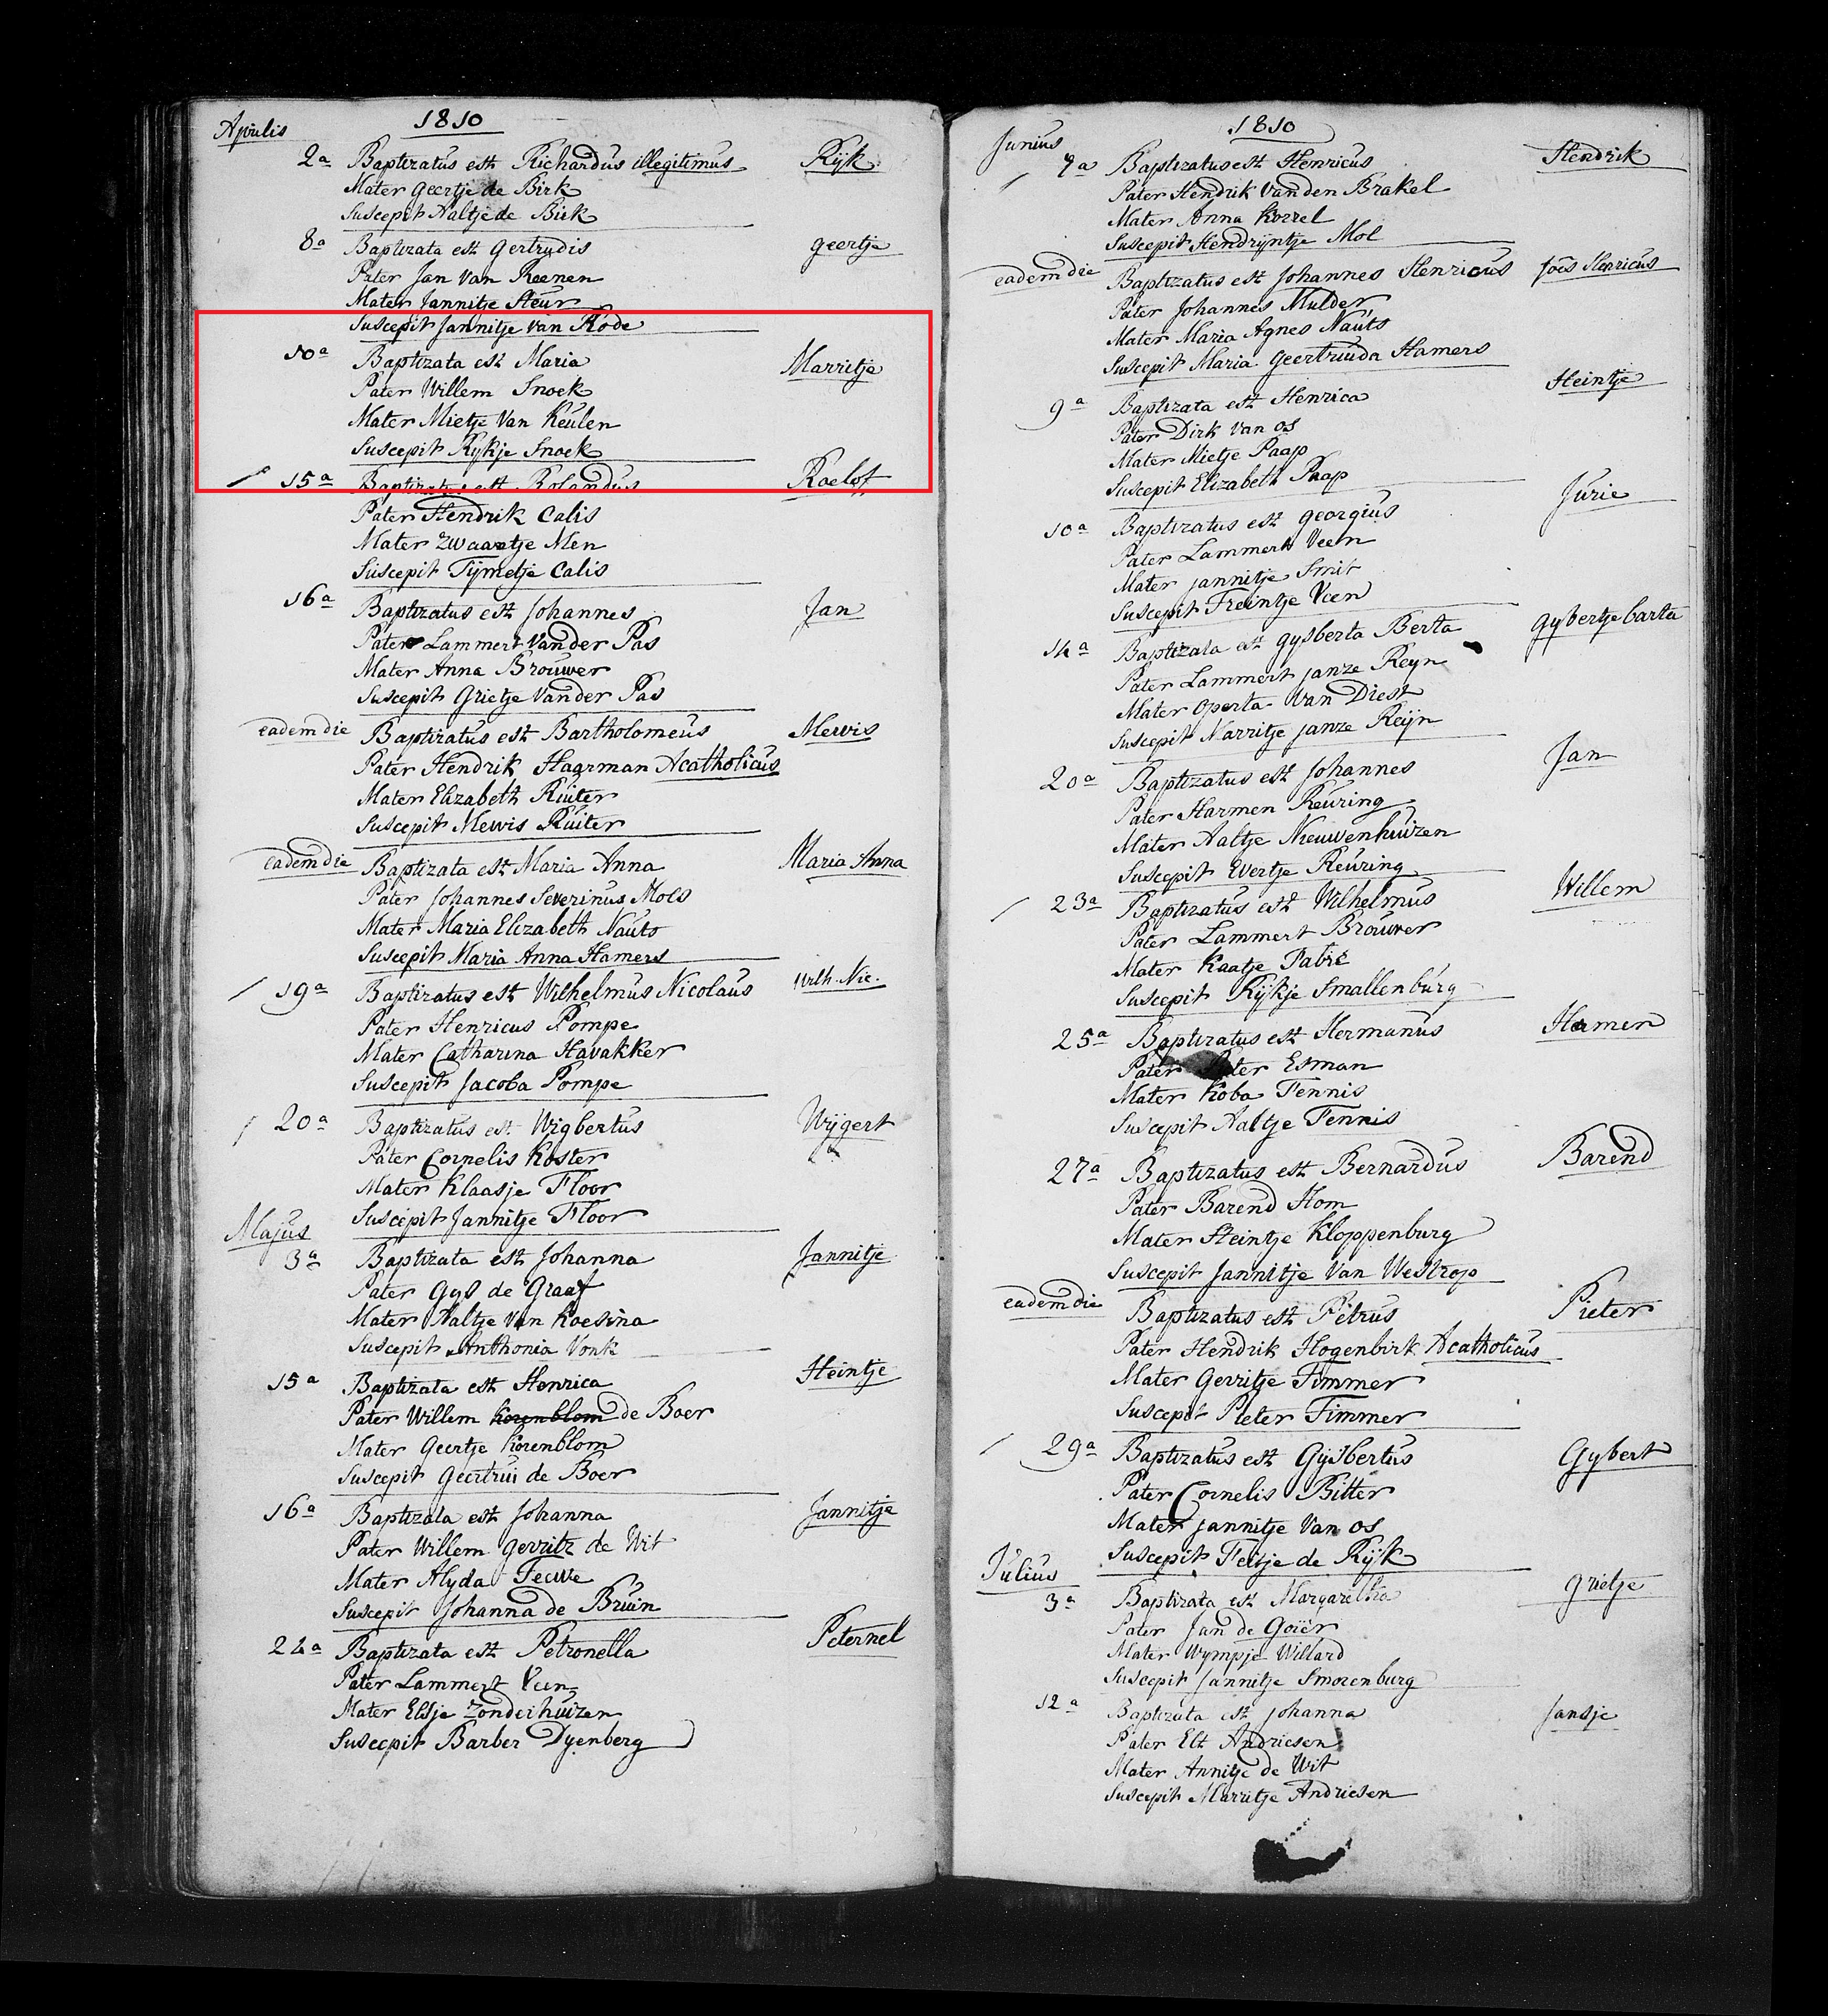 Aprilis
1810
2a Baptizatus est Richardus illegitimus Rijk
Mater Geertje de Birk
Suscepit Aaltje de Birk
8a Baptizata est Gertrudis geertje
Pater Jan Van Reenen
Mater Jannitje Steur
Suscepit Jannitje Van Rode
10a Baptizata est Maria Marritje
Pater Willem Snoek
Mater Mietje Van Keulen
Suscepit Rykje Snoek
15a Baptizatus est Rolandus Roelof
Pater Hendrik Calis
Mater Zwaantje Men
Suscepit Tijmetje Calis
16a Baptizatus est Johannes Jan
Pater Lammert Van der Pas
Mater Anna Brouwer
Suscepit Grietje Van der Pas
eadem die Baptizatus est Bartholomeus Mewis
Pater Hendrik Haarman Acatholicus
Mater Elizabeth Ruiter
Suscepit Mewis Ruiter
eadem die Baptizata est Maria Anna Maria Anna
Pater Johannes Severinus Mols
Mater Maria Elizabeth Nauts
Suscepit Maria Anna Hamers
19a Baptizatus est Wilhelmus Nicolaus Wilh. Nic.
Pater Henricus Pompe
Mater Catharina Havakker
Suscepit Jacoba Pompe
20a Baptizatus est Wigbertus Wijgert
Pater Cornelis Koster
Mater Klaasje Floor
Suscepit Jannitje Floor
Majus
3a Baptizata est Johanna Jannitje
Pater Gys de Graaf
Mater Aaltje Van Koesina
Suscepit Anthonia Vonk
15a Baptizata est Henrica Heintje
Pater Willem Korenblom de Boer
Mater Geertje Korenblom
Suscepit Geertrui de Boer
16a Baptizata est Johanna Jannitje
Pater Willem Gerritz de Wit
Mater Alyda Teuwe
Suscepit Johanna de Bruin
24a Baptizata est Petronella Peternel
Pater Lammert Veen
Mater Elsje Zonderhuizen
Suscepit Barber Dyenberg
Junius
1810
7a Baptizatus est Henricus Hendrik
Pater Hendrik Van den Brakel
Mater Anna Korrel
Suscepit Hendrijntje Mol
eadem die Baptizatus est Johannes Henricus Joës Henricus
Pater Johannes Mulder
Mater Maria Agnes Nauts
Suscepit Maria Geertruida Hamers
9a Baptizata est Henrica Heintje
Pater Dirk Van Os
Mater Mietje Paap
Suscepit Elizabeth Paap
10a Baptizatus est Georgius Jurie
Pater Lammert Veen
Mater Jannitje Smit
Suscepit Treintje Veen
14a Baptizata est Gysberta Berta Gybertje barta
Pater Lammert Janze Reyn
Mater Operta Van Diest
Suscepit Marritje Janze Reijn
20a Baptizatus est Johannes Jan
Pater Harmen Reuring
Mater Aaltje Nieuwenhuizen
Suscepit Evertje Reuring
23a Baptizatus est Wilhelmus Willem
Pater Lammert Brouwer
Mater Kaatje Fabri
Suscepit Rijkje Smallenburg
25a Baptizatus est Hermanus Harmen
Pater Pieter Esman
Mater Koba Tennis
Suscepit Aaltje Tennis
27a Baptizatus est Bernardus Barend
Pater Barend Hom
Mater Heintje Kloppenburg
Suscepit Jannitje Van Westrop
eadem die Baptizatus est Petrus Pieter
Pater Hendrik Hogenbirk Acatholicus
Mater Gerritje Timmer
Suscepit Pieter Timmer
29a Baptizatus est Gijsbertus Gybert
Pater Cornelis Bitter
Mater Jannitje Van Os
Suscepit Feitje de Rijk
Julius
3a Baptizata est Margaretha Grietje
Pater Jan de Goiër
Mater Wympje Willard
Suscepit Jannitje Smorenburg
12a Baptizata est Johanna Jansje
Pater Elt Andriesen
Mater Annitje de Wit
Suscepit Marritje Andriesen